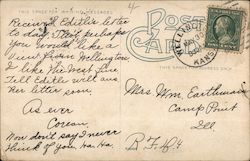 THIS SPACE FOR WRITING MESSAGES
4
POST CARD
THIS SPACE FOR ADDRESS ONLY
WELLINGTON
KANS
Received Edith's letter
to day. That perhaps
you would like a
view from Wellington.
I like the West fine.
Tell Edith will ans
her letter soon.
As ever
Corean
Now don't say I never
think of you. Ha Ha.
Mrs Wm. Earthman
Camp Point
Ill.
R.F.D. 4